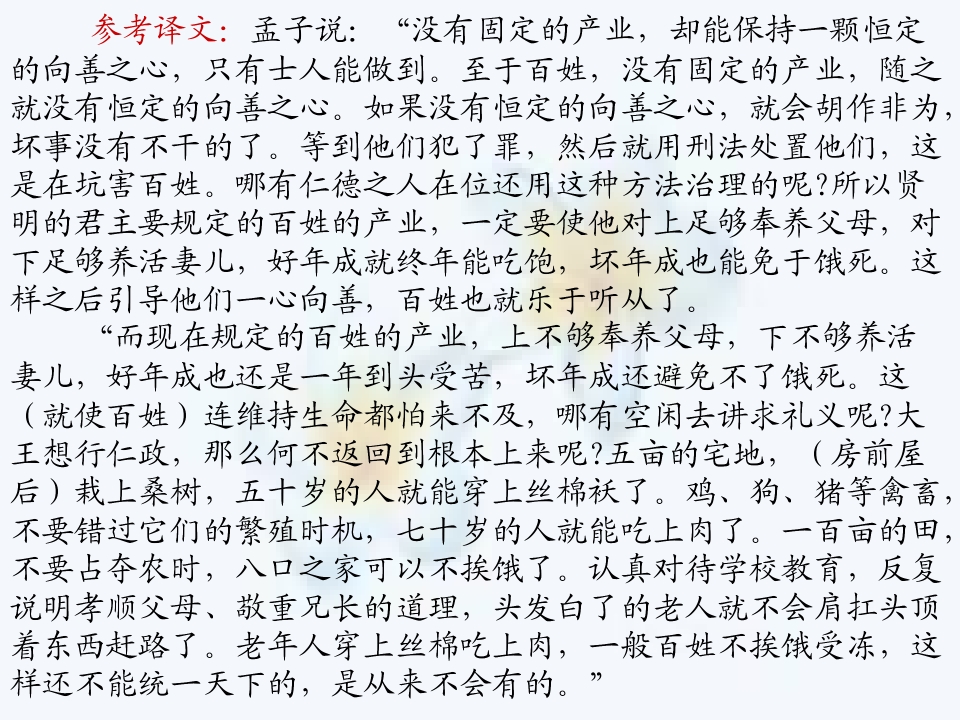 参考译文：孟子说：“没有固定的产业，却能保持一颗恒定
的向善之心，只有士人能做到。至于百姓，没有固定的产业，随之
就没有恒定的向善之心。如果没有恒定的向善之心，就会胡作非为，
坏事没有不干的了。等到他们犯了罪，然后就用刑法处置他们，这
是在坑害百姓。哪有仁德之人在位还用这种方法治理的呢?所以贤
明的君主要规定的百姓的产业，一定要使他对上足够奉养父母，对
下足够养活妻儿，好年成就终年能吃饱，坏年成也能免于饿死。这
样之后引导他们一心向善，百姓也就乐于听从了。
“而现在规定的百姓的产业，上不够奉养父母，下不够养活
妻儿，好年成也还是一年到头受苦，坏年成还避免不了饿死。这
（就使百姓）连维持生命都怕来不及，哪有空闲去讲求礼义呢?大
王想行仁政，那么何不返回到根本上来呢?五亩的宅地，（房前屋
后）栽上桑树，五十岁的人就能穿上丝棉袄了。鸡、狗、猪等禽畜，
不要错过它们的繁殖时机，七十岁的人就能吃上肉了。一百亩的田，
不要占夺农时，八口之家可以不挨饿了。认真对待学校教育，反复
说明孝顺父母、敬重兄长的道理，头发白了的老人就不会肩扛头顶
着东西赶路了。老年人穿上丝棉吃上肉，一般百姓不挨饿受冻，这
样还不能统一天下的，是从来不会有的。”